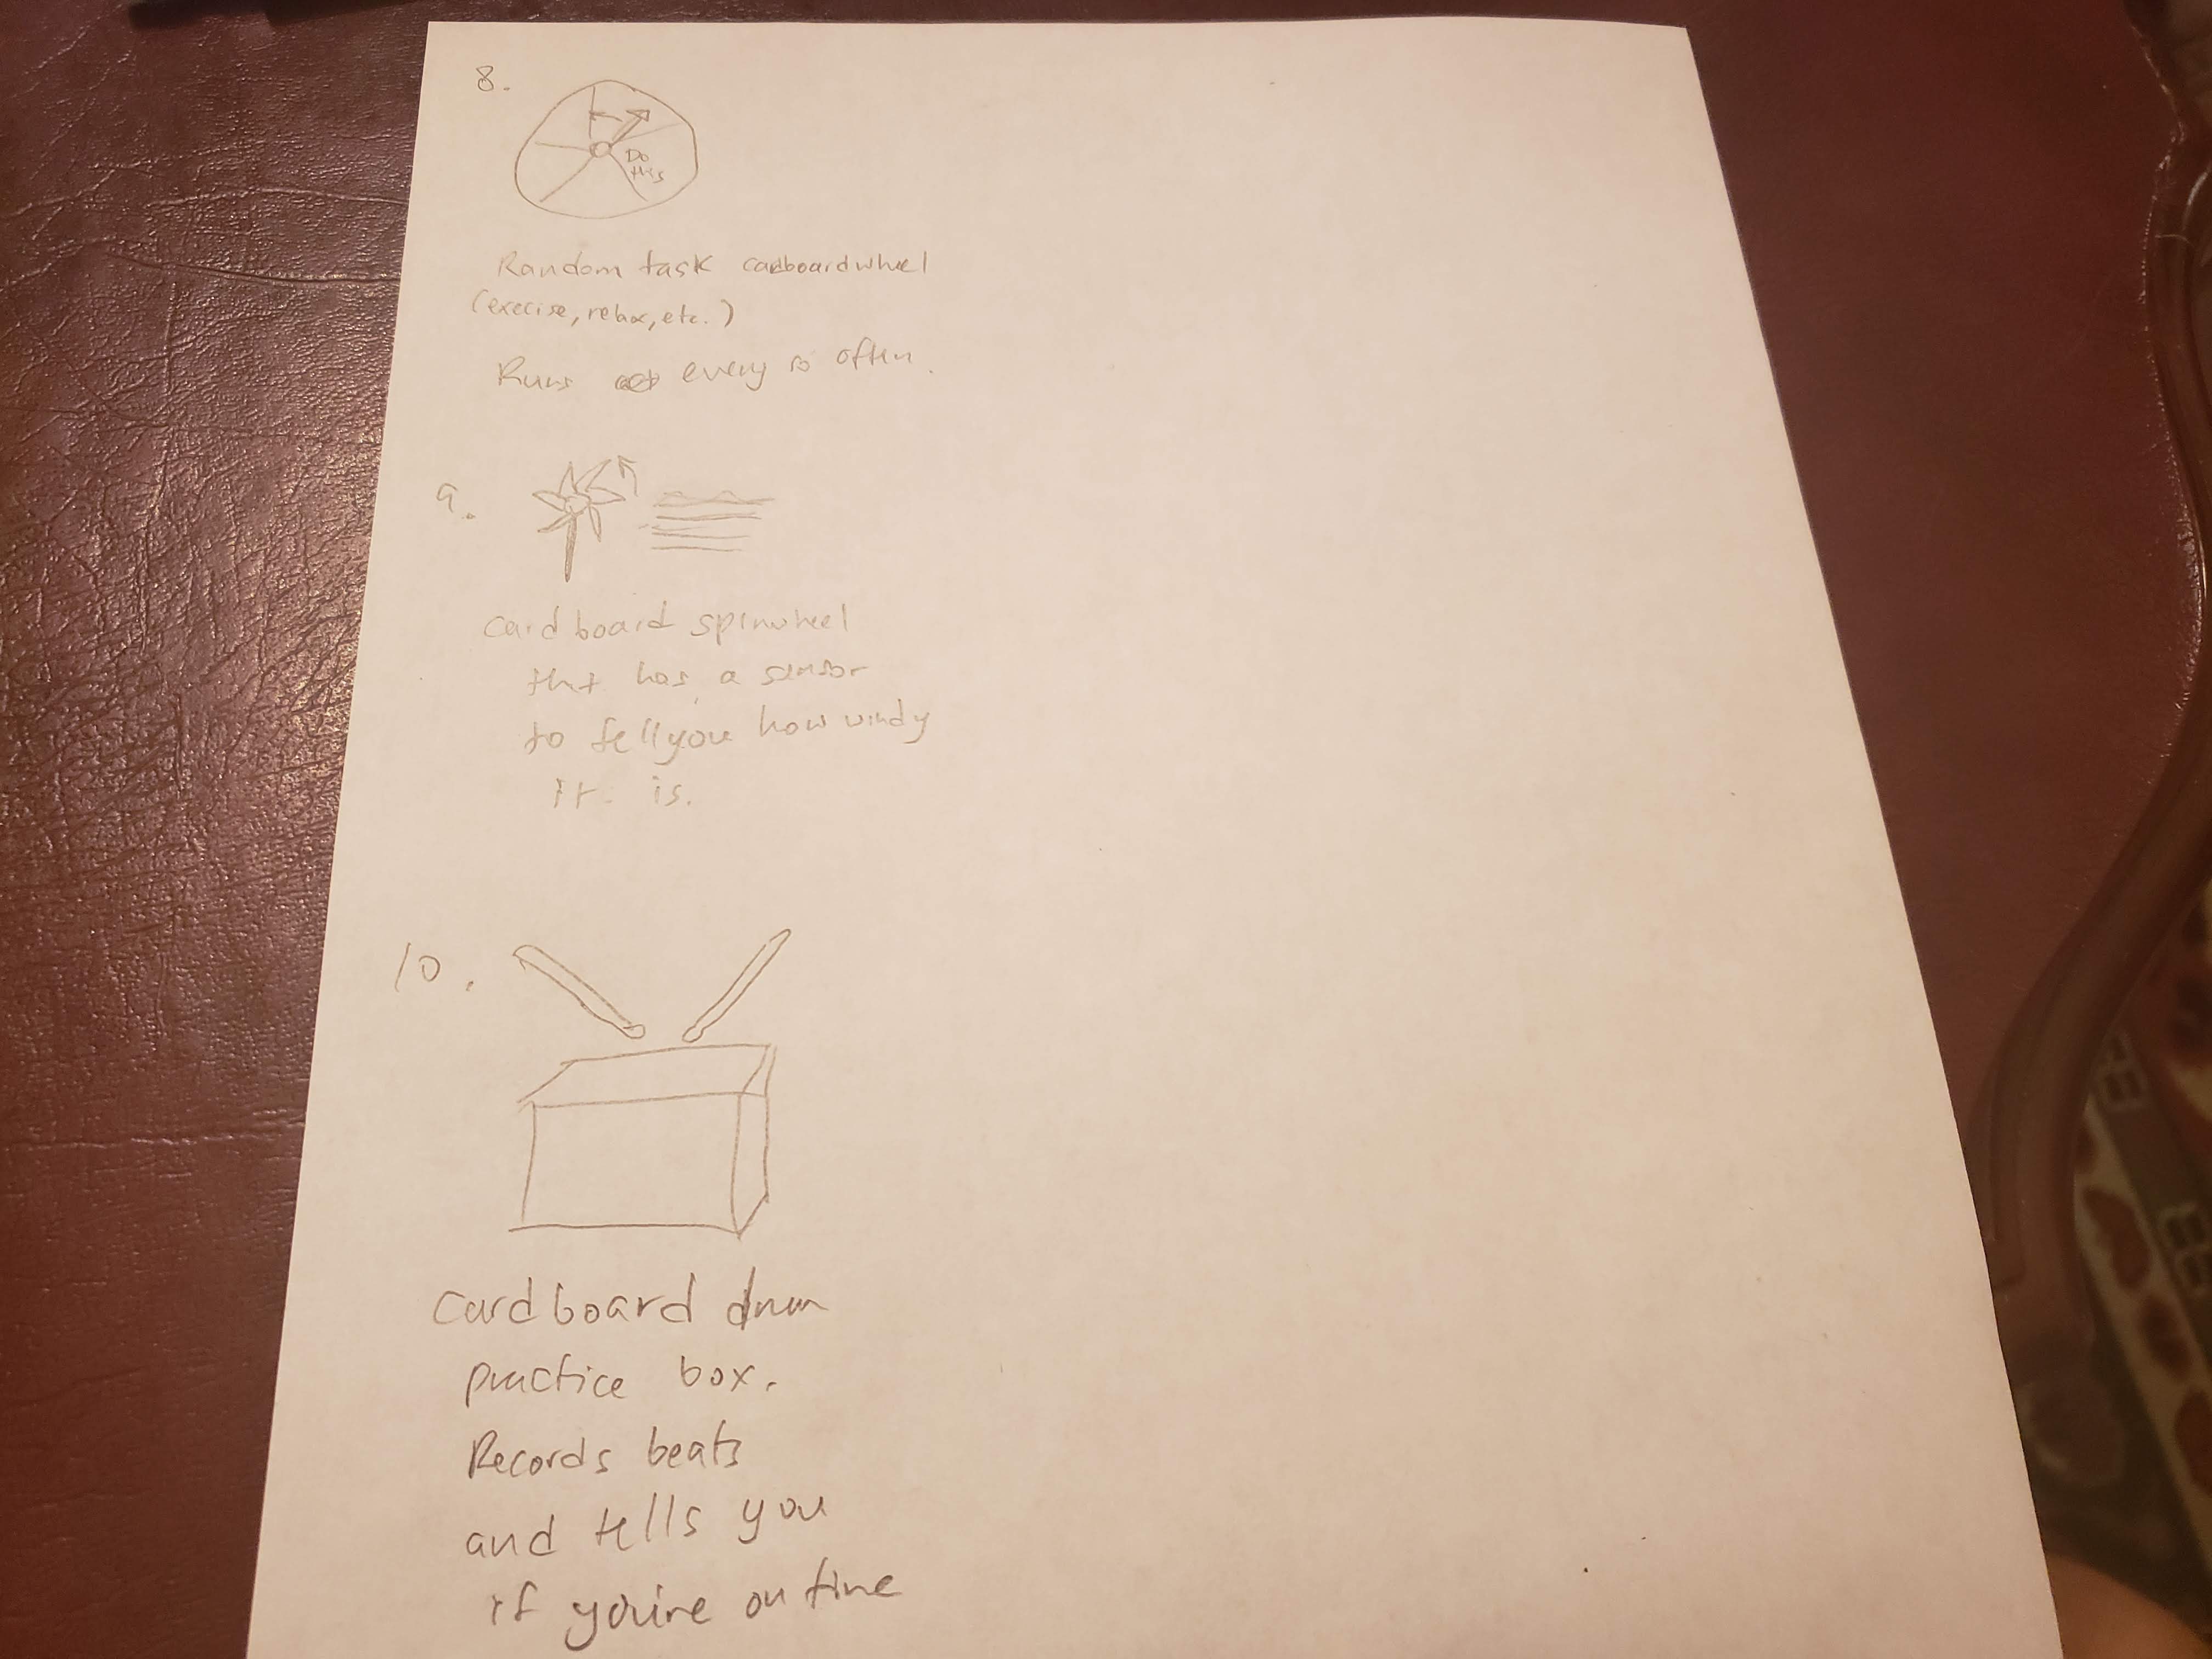 8.
Do
this
Random task cardboard wheel
(execise, relax, etc.)
Runs every so often.
9.
Cardboard spinwheel
that has a sensor
to tell you how windy
it is.
10.
Cardboard drum
practice box.
Records beats
and tells you
if you're on time